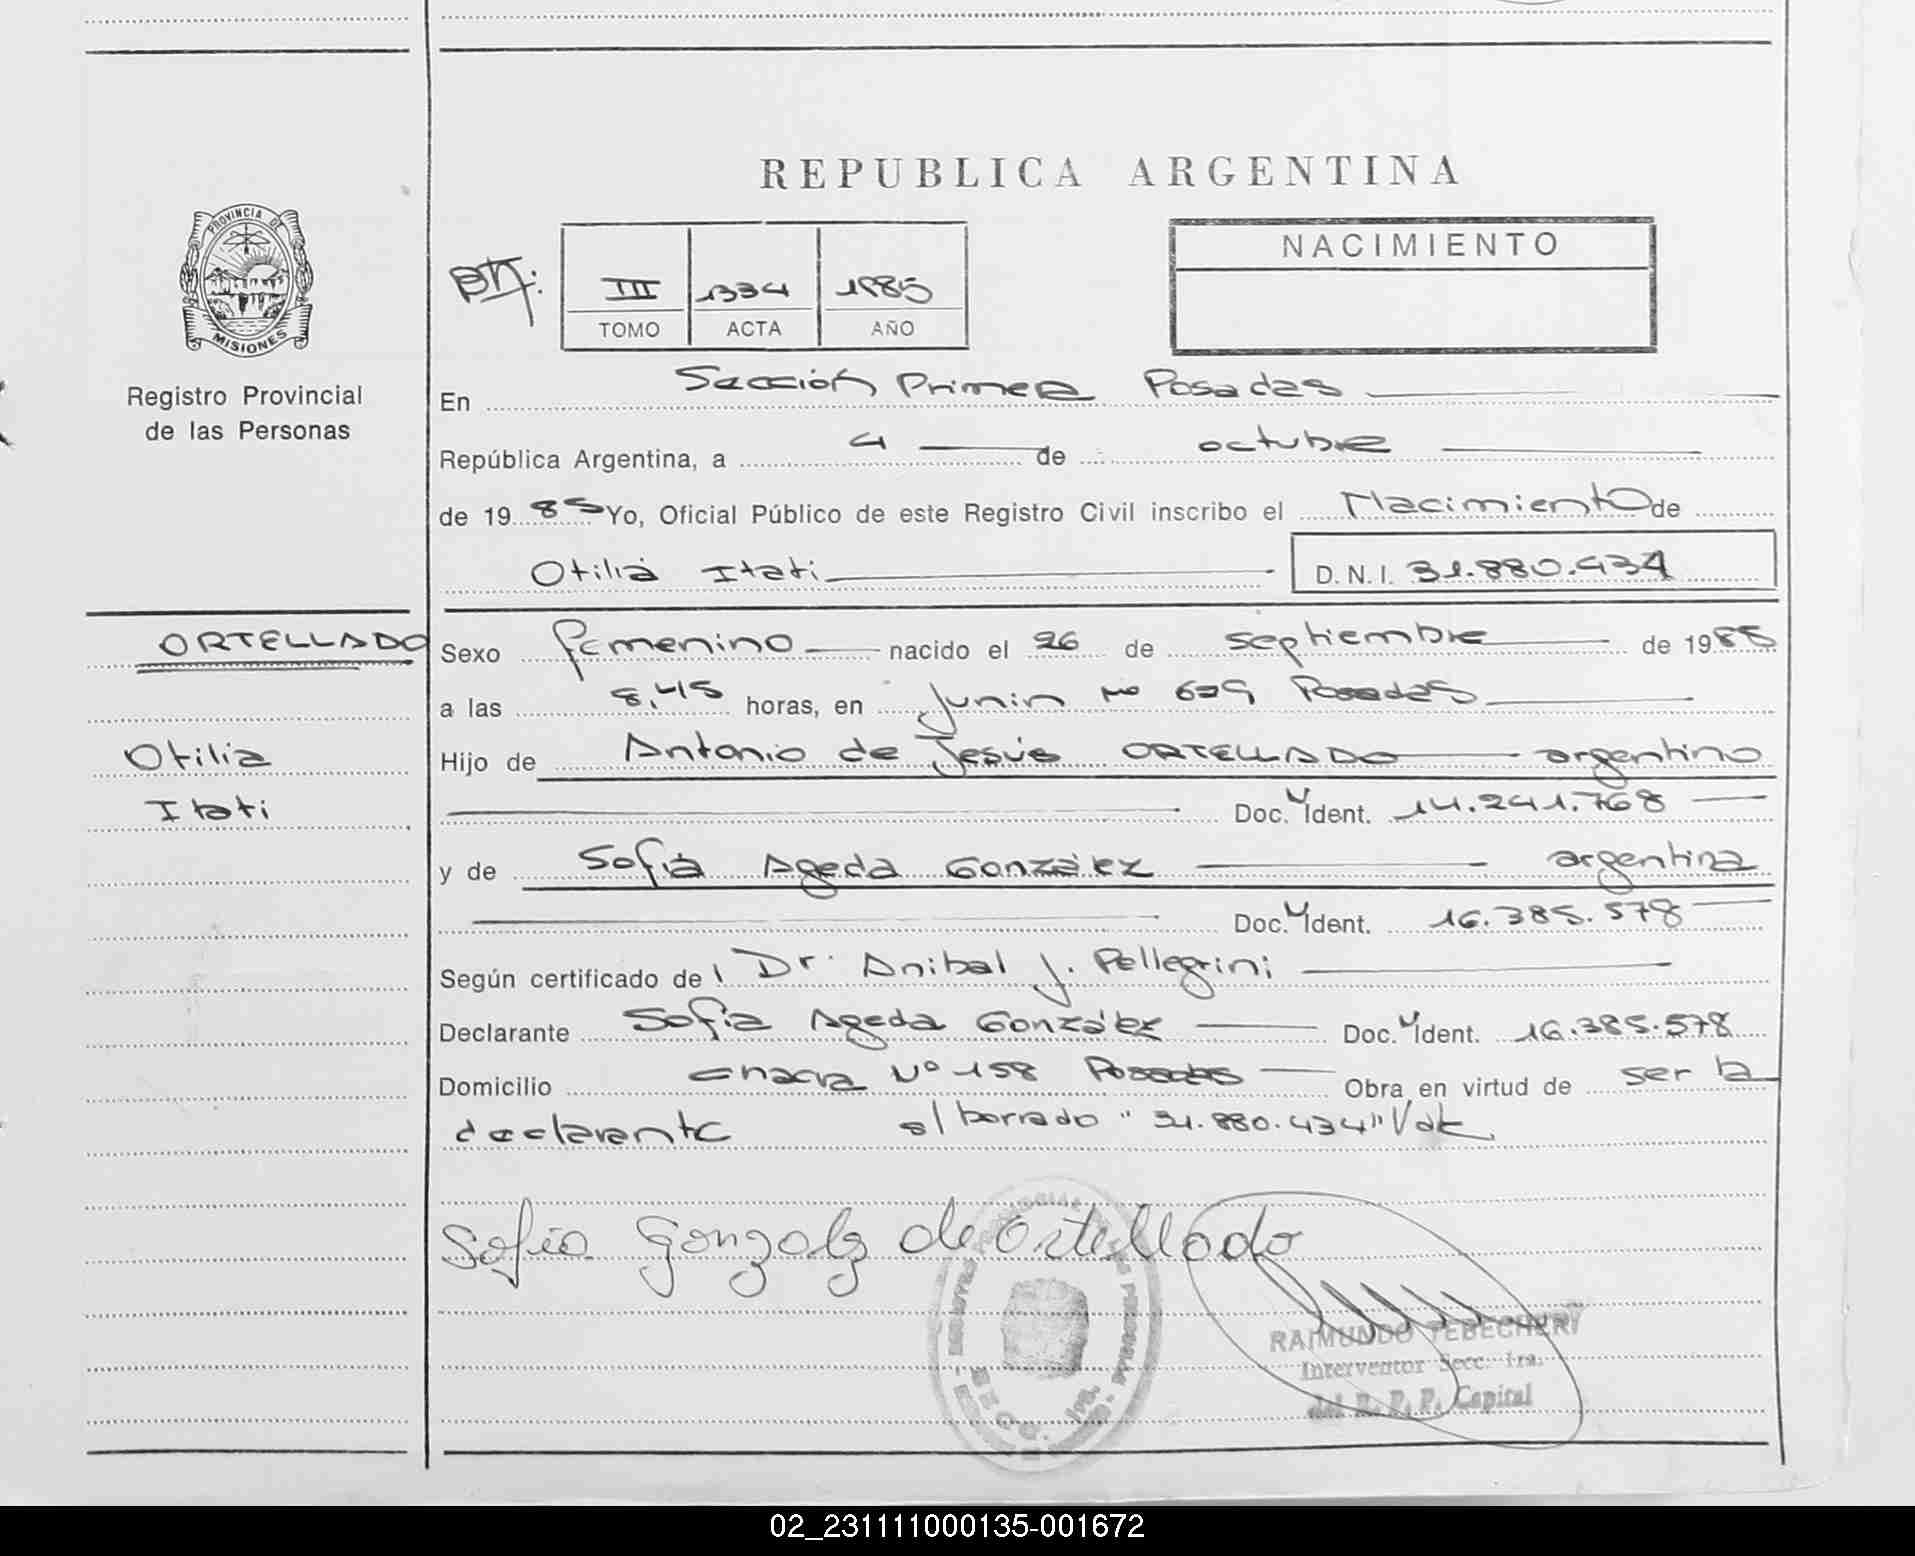 REPUBLICA ARGENTINA
PROVINCIA DE
MISIONES
Registro Provincial
de las Personas
NACIMIENTO
III 1334 1985
TOMO ACTA AÑO
En Sección Primera Posadas
República Argentina, a 4 de octubre
de 19 85 Yo, Oficial Público de este Registro Civil inscribo el Nacimiento de
Otilia Itati D.N.I. 31.880.434
ORTELLADO
Otilia
Itati
Sexo femenino nacido el 26 de septiembre de 19 85
a las 8,45 horas, en Junin Nº 609 Posadas
Hijo de Antonio de Jesús ORTELLADO argentino
Doc. Ident. 14.241.768
y de Sofia Ageda González argentina
Doc. Ident. 16.385.578
Según certificado de l Dr. Anibal J. Pellegrini
Declarante Sofia Ageda González Doc. Ident. 16.385.578
Domicilio chacra Nº 158 Posadas Obra en virtud de ser la
declarante s/ borrado "31.880.434" Vale
Sofia Gonzalz de Ortellado
RAIMUNDO TEBECHERI
Interventor Secc. 1ra.
del R. P. P. Capital
02_231111000135-001672